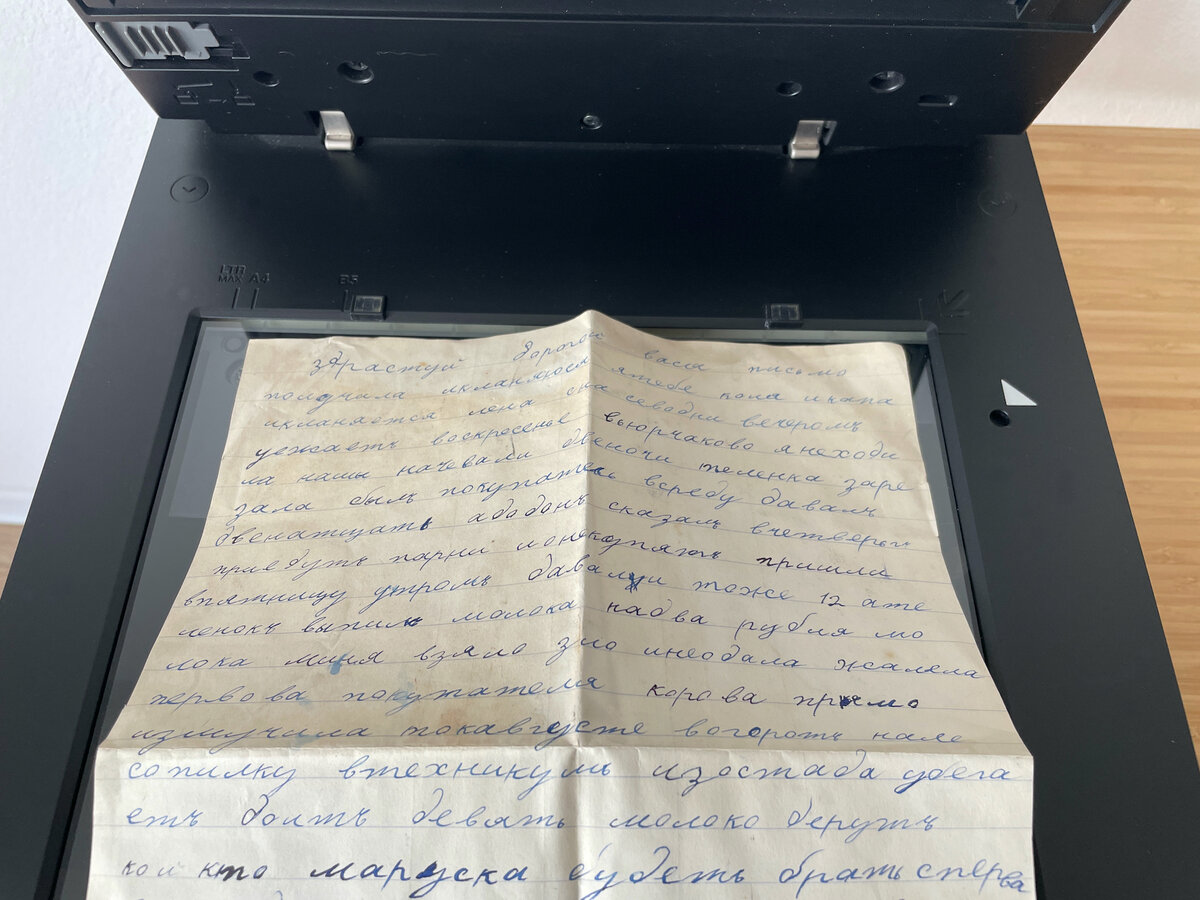 LTR
MAX A4
B5
здрастуй дорогой васа письмо
получила икланяюся ятебе коля иката
икланяется лена она севодни вечеромъ
уежаетъ воскресенье вьюрчаково янеходи
ла нашы начевали двеночи теленка заре
зала былъ покупатель вереду давалъ
двенатцать ададонъ сказалъ вчетвергъ
приедутъ парни ионекупятъ пришли
впятницу утромъ давали тоже 12 ате
ленокъ выпилъ молока надва рубля мо
лока миня взяло зло инеодала жалела
перво ва покупателя корова прямо
измучила покавгусте вогородъ нале
сопилку втехникумъ изостада убега
етъ доитъ девять молоко берутъ
кой кто маруска будеть брать сперва